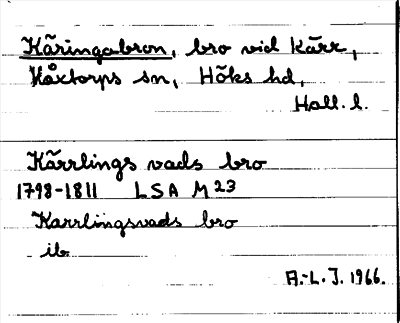 Käringabron, bro vid Kärr,
Växtorps sn, Höks hd,
Hall. l.
Kärrlings vads bro
1798-1811 LSA M 23
Karrlingsvads bro
ib.
A.-L. J. 1966.